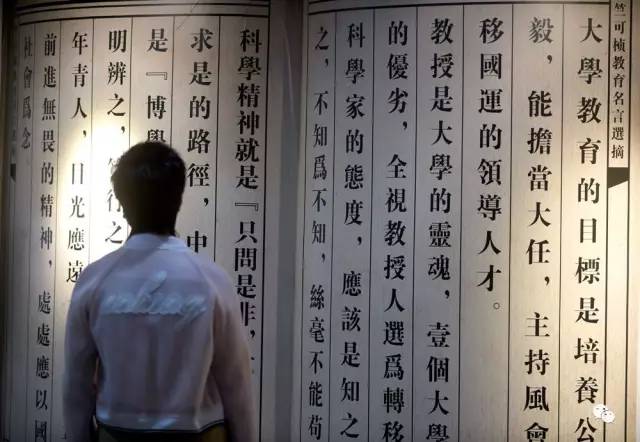 竺可楨教育名言選摘
大學教育的目標是培養公
毅，能擔當大任，主持風會
移國運的領導人才。
教授是大學的靈魂，壹個大學
的優劣，全視教授人選爲轉移
科學家的態度，應該是知之
之，不知爲不知，絲毫不能苟
科學精神就是『只問是非，
求是的路徑，中
是『博學
明辨之，篤行之
年青人，目光應遠
前進無畏的精神，處處應以國
社會爲念。